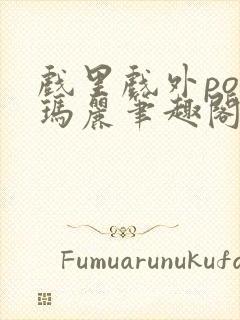 戲里戲外po
瑪麗筆趣閣
Fumuarunukufa